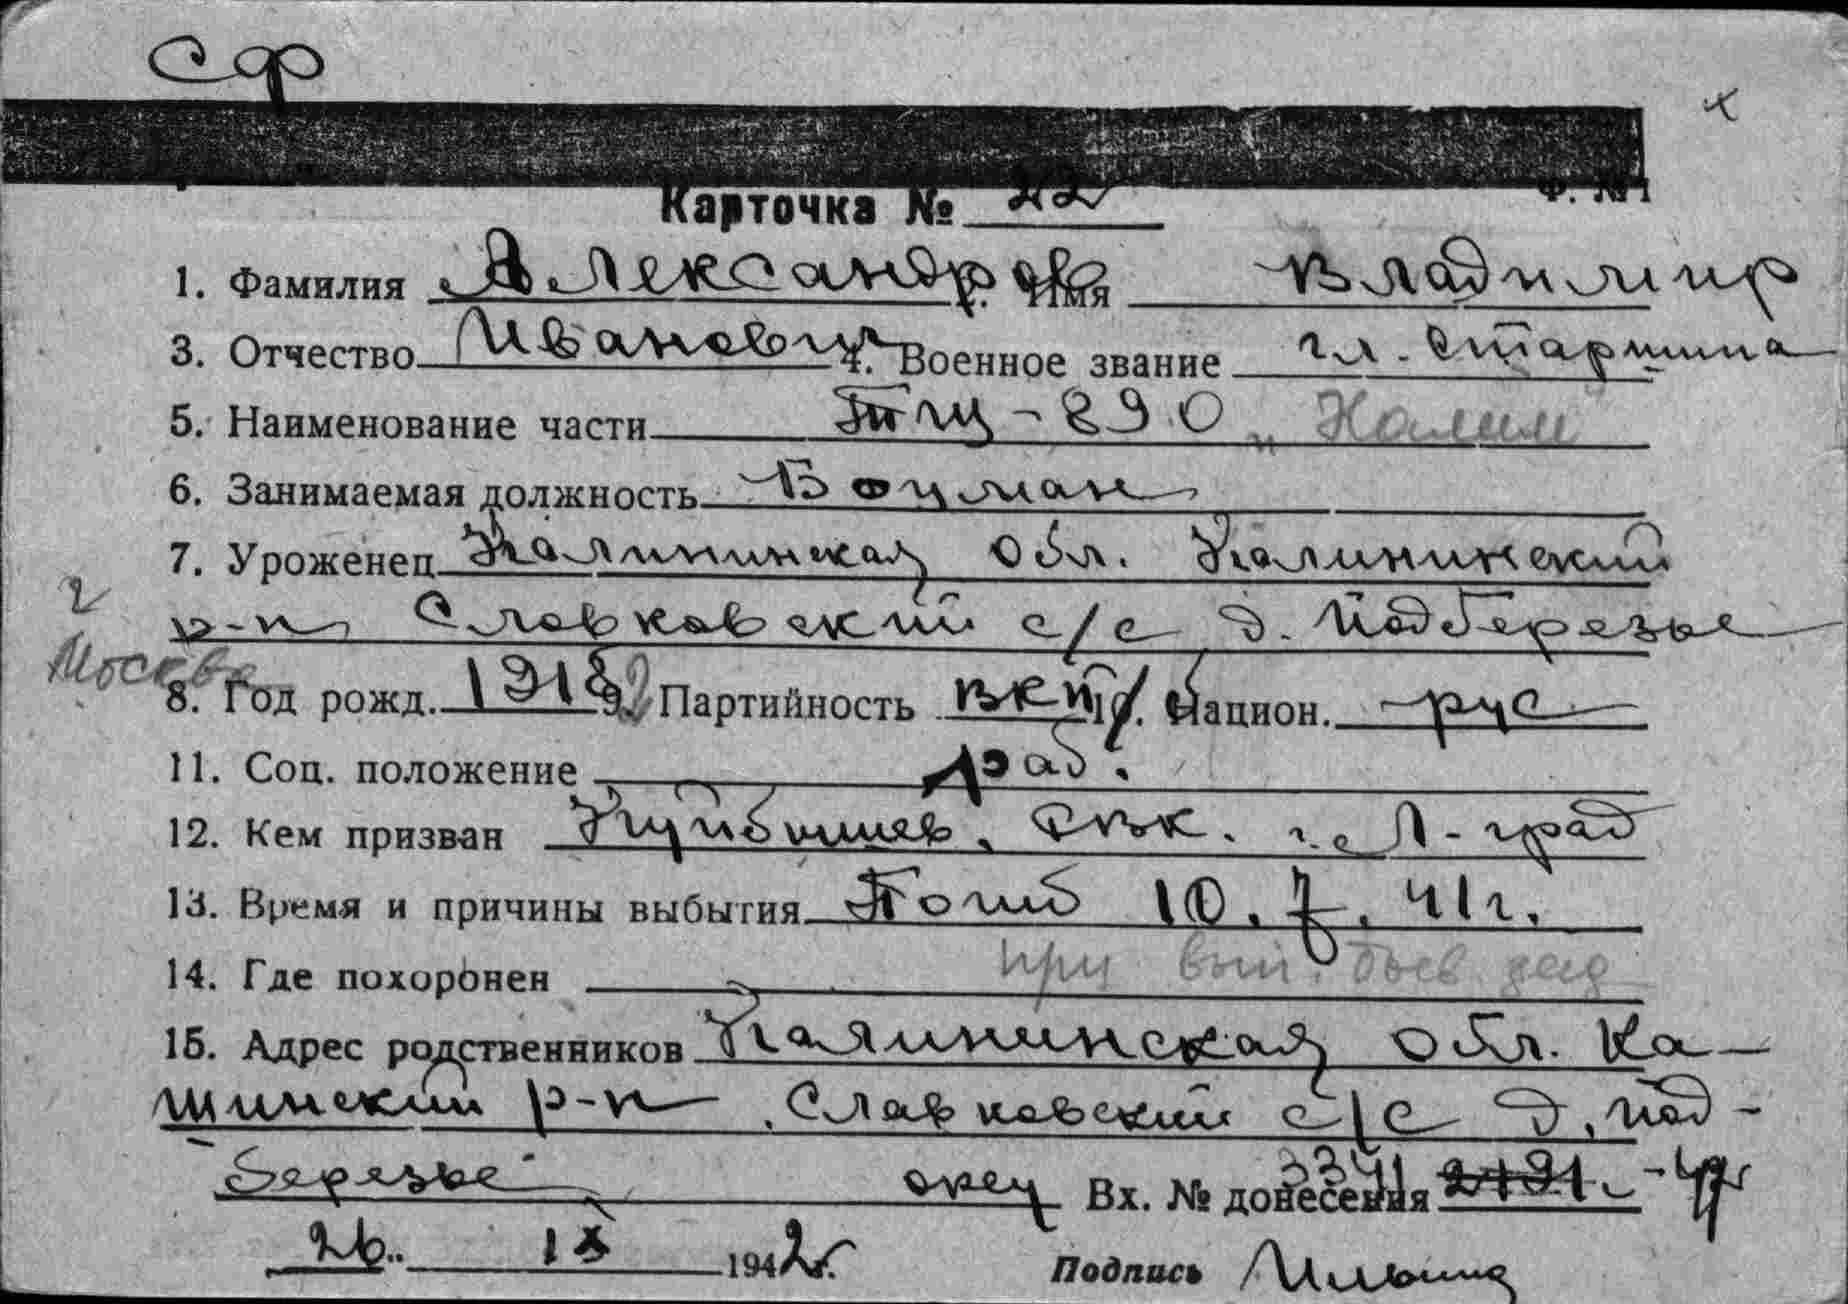 СФ
Карточка № 22 Ф. № 1
1. Фамилия Александров 2. Имя Владимир
3. Отчество Иванович 4. Военное звание гл. старшина
5. Наименование части ТЩ-890 „Налим"
6. Занимаемая должность Боцман
7. Уроженец Калининская обл. Калининский
р-н Славковский с/с д. Подберезье
г Москва
8. Год рожд. 1918 9. Партийность ВКП/б 10. Национ. рус
11. Соц. положение раб.
12. Кем призван Куйбышев. РВК. г. Л-град
13. Время и причины выбытия Погиб 10.7.41г.
при вып. боев. зад
14. Где похоронен
15. Адрес родственников Калининская обл. Ка-
шинский р-н, Славковский с/с д. Под-
березье отец Вх. № донесения 3341
26 IX 1942г. Подпись